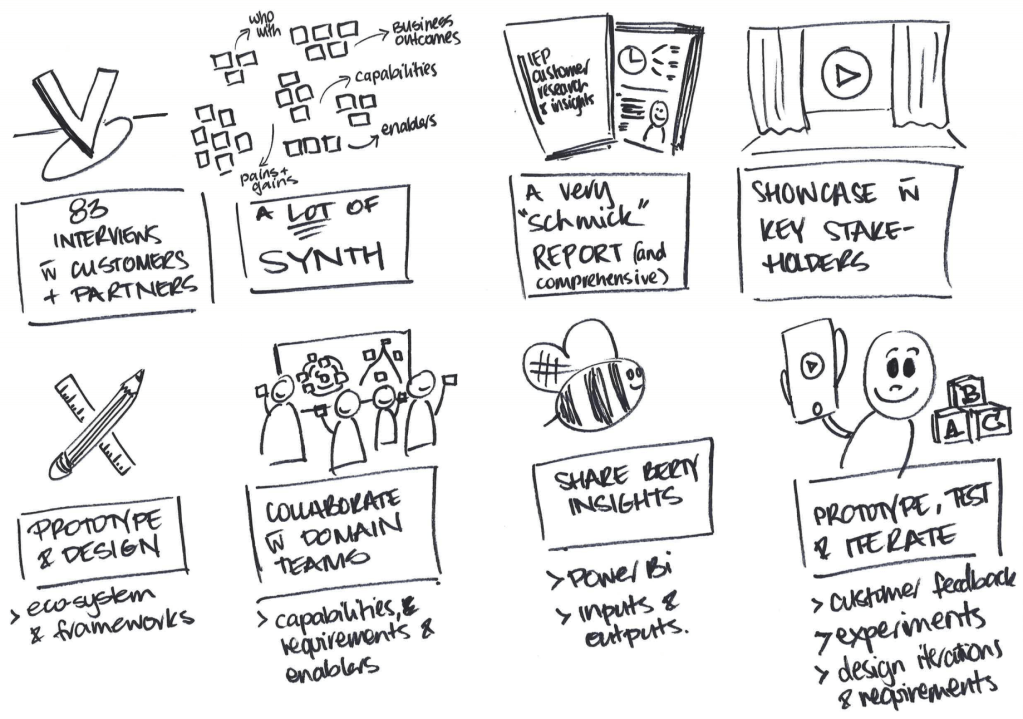 who
with
BUSINESS
OUTCOMES
capabilities
enablers
pains+
gains
83
INTERVIEWS
w̄ CUSTOMERS
+ PARTNERS
A LOT OF
SYNTH
IEP
customer
research
& insights
A very
"schmick"
REPORT (and
comprehensive)
SHOWCASE w̄
KEY STAKE-
HOLDERS
PROTOTYPE
& DESIGN
> eco-system
& frameworks
COLLABORATE
w̄ DOMAIN
TEAMS
> capabilities, &
requirements &
enablers
SHARE BERTY
INSIGHTS
> POWER Bi
> inputs &
outputs.
B
A C
PROTOTYPE, TEST
& ITERATE
> customer feedback
> experiments
> design iterations
& requirements